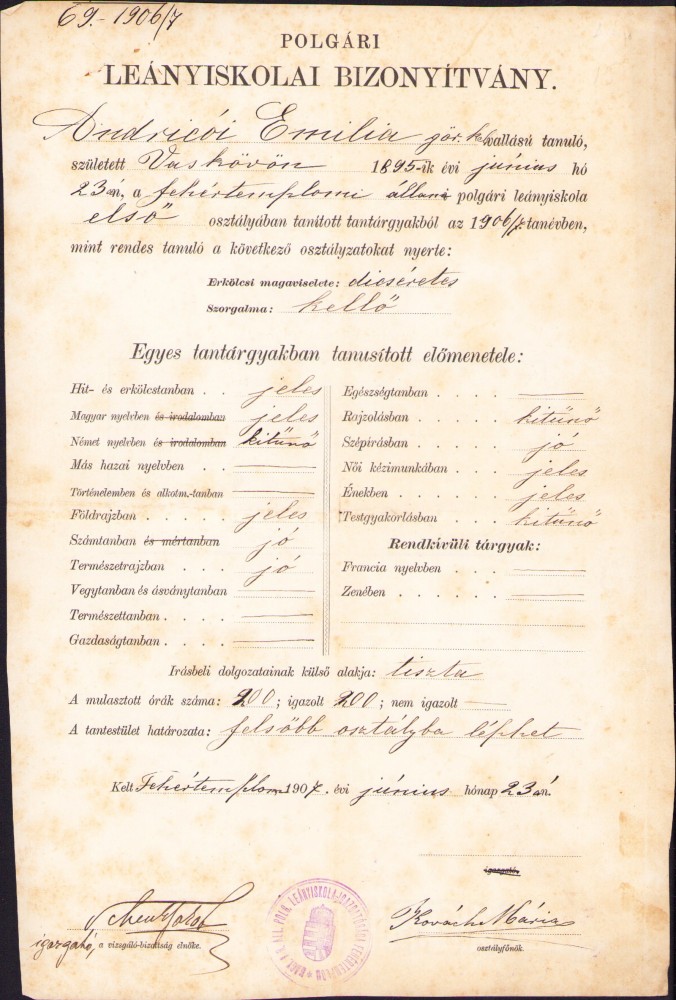 69.- 1906/7
POLGÁRI
LEÁNYISKOLAI BIZONYÍTVÁNY.
Andricói Emilia gör. kel. vallású tanuló,
született Vaskövön 1895-ik évi június hó
23-án, a fehértemplomi állami polgári leányiskola
első osztályában tanított tantárgyakból az 1906/7. tanévben,
mint rendes tanuló a következő osztályzatokat nyerte:
Erkölcsi magaviselete: dicséretes
Szorgalma: kellő
Egyes tantárgyakban tanusított előmenetele:
Hit- és erkölcstanban . . jeles
Magyar nyelvben és irodalomban jeles
Német nyelvben és irodalomban kitünő
Más hazai nyelvben . .
Történelemben és alkotm.-tanban
Földrajzban . . . . . jeles
Számtanban és mértanban jó
Természetrajzban . . . jó
Vegytanban és ásványtanban
Természettanban . . . .
Gazdaságtanban . . . .
Egészségtanban . . . .
Rajzolásban . . . . . kitünő
Szépírásban . . . . . jó
Női kézimunkában . . . jeles
Énekben . . . . . . jeles
Testgyakorlásban . . . kitünő
Rendkívüli tárgyak:
Francia nyelvben . . .
Zenében . . . . . .
Irásbeli dolgozatainak külső alakja: tiszta
A mulasztott órák száma: 200; igazolt 200; nem igazolt —
A tantestület határozata: felsőbb osztályba léphet
Kelt Fehértemplom 1907. évi június hónap 23-án.
igazgató.
igazgató, a vizsgáló-bizottság elnöke.
Kovách Mária
osztályfőnök.